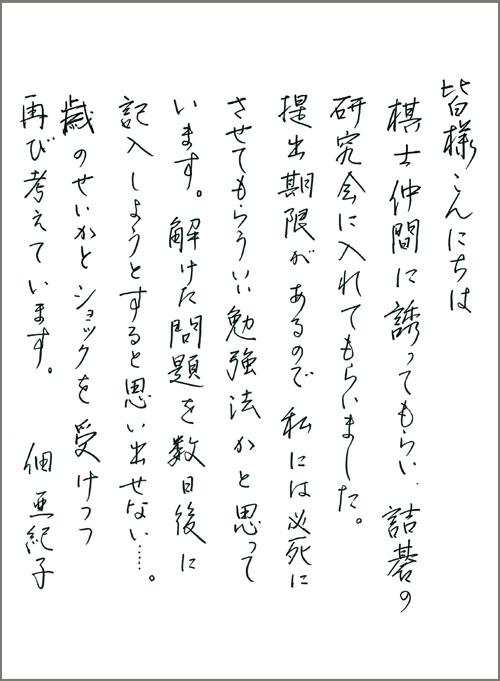 皆様こんにちは
棋士仲間に誘ってもらい、詰碁の
研究会に入れてもらいました。
提出期限があるので私には必死に
させてもらういい勉強法かと思って
います。解けた問題を数日後に
記入しようとすると思い出せない……。
歳のせいかとショックを受けつつ
再び考えています。 佃亜紀子